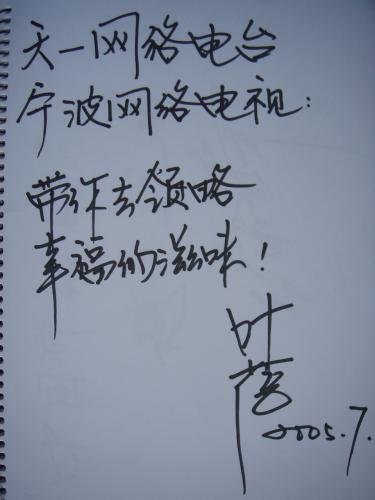 天一网络电台
宁波网络电视：
带你去领略
幸福的滋味！
叶
2005.7.